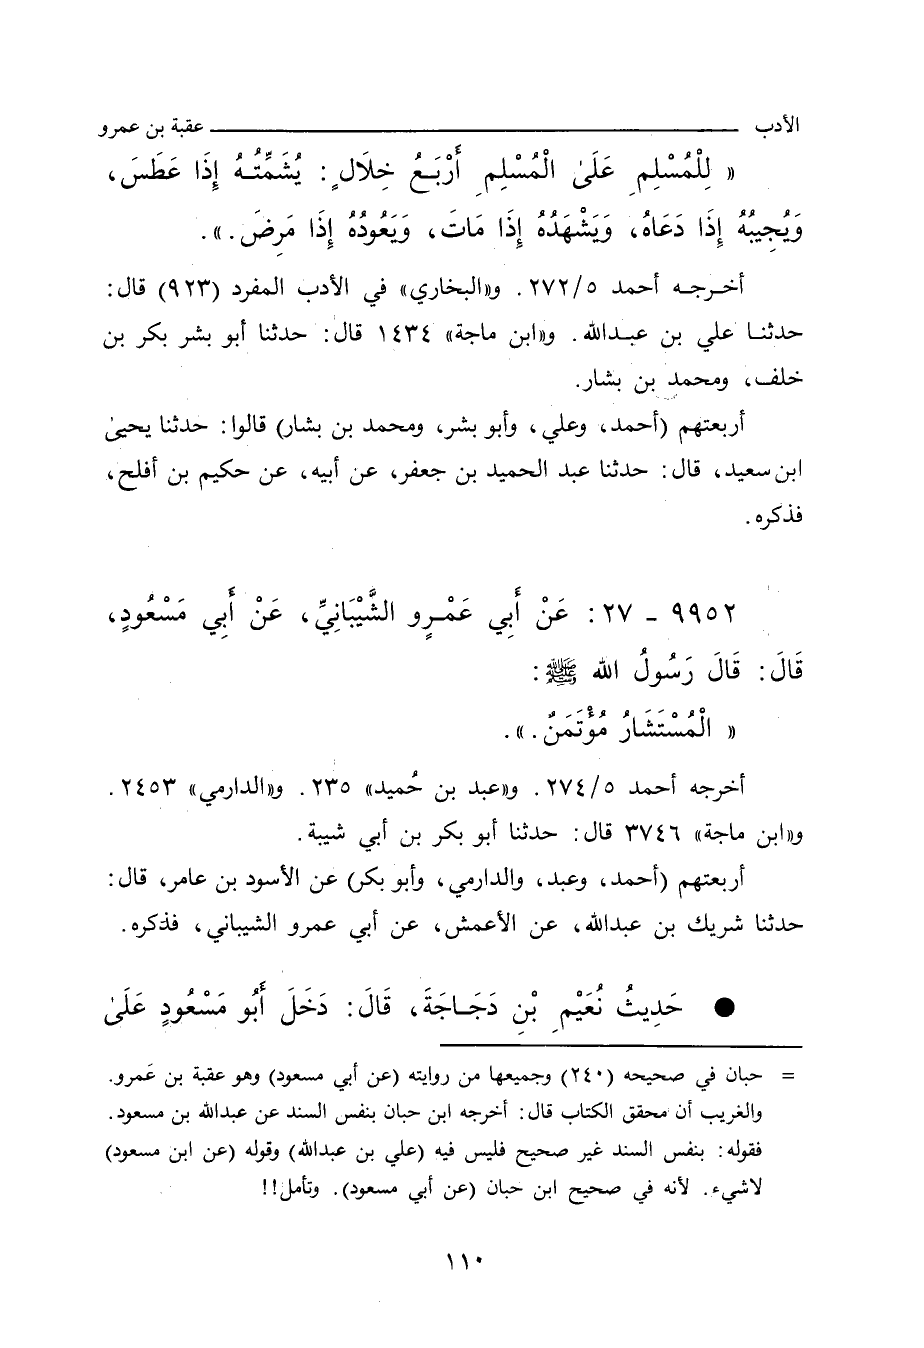 الأدب ــــــــــــــــــــــــــــــــ عقبة بن عمرو
« لِلْمُسْلِمِ عَلَىٰ الْمُسْلِمِ أَرْبَعُ خِلَالٍ : يُشَمِّتُهُ إِذَا عَطَسَ ،
وَيُجِيبُهُ إِذَا دَعَاهُ ، وَيَشْهَدُهُ إِذَا مَاتَ ، وَيَعُودُهُ إِذَا مَرِضَ . » .
أخرجه أحمد ٢٧٢/٥ . و«البخاري» في الأدب المفرد (٩٢٣) قال :
حدثنا علي بن عبدالله . و«ابن ماجة» ١٤٣٤ قال : حدثنا أبو بشر بكر بن
خلف ، ومحمد بن بشار .
أربعتهم (أحمد ، وعلي ، وأبو بشر ، ومحمد بن بشار) قالوا : حدثنا يحيىٰ
ابن سعيد ، قال : حدثنا عبد الحميد بن جعفر ، عن أبيه ، عن حكيم بن أفلح ،
فذكره .
٩٩٥٢ ـ ٢٧ : عَنْ أَبِي عَمْرٍو الشَّيْبَانِيِّ ، عَنْ أَبِي مَسْعُودٍ ،
قَالَ : قَالَ رَسُولُ الله ﷺ :
« الْمُسْتَشَارُ مُؤْتَمَنٌ . » .
أخرجه أحمد ٢٧٤/٥ . و«عبد بن حُميد» ٢٣٥ . و«الدارمي» ٢٤٥٣ .
و«ابن ماجة» ٣٧٤٦ قال : حدثنا أبو بكر بن أبي شيبة .
أربعتهم (أحمد ، وعبد ، والدارمي ، وأبو بكر) عن الأسود بن عامر ، قال :
حدثنا شريك بن عبدالله ، عن الأعمش ، عن أبي عمرو الشيباني ، فذكره .
● حَدِيثُ نُعَيْمِ بْنِ دَجَاجَةَ ، قَالَ : دَخَلَ أَبُو مَسْعُودٍ عَلَىٰ
= حبان في صحيحه (٢٤٠) وجميعها من روايته (عن أبي مسعود) وهو عقبة بن عَمرو .
والغريب أن محقق الكتاب قال : أخرجه ابن حبان بنفس السند عن عبدالله بن مسعود .
فقوله : بنفس السند غير صحيح فليس فيه (علي بن عبدالله) وقوله (عن ابن مسعود)
لاشيء . لأنه في صحيح ابن حبان (عن أبي مسعود) . وتأمل!!
١١٠